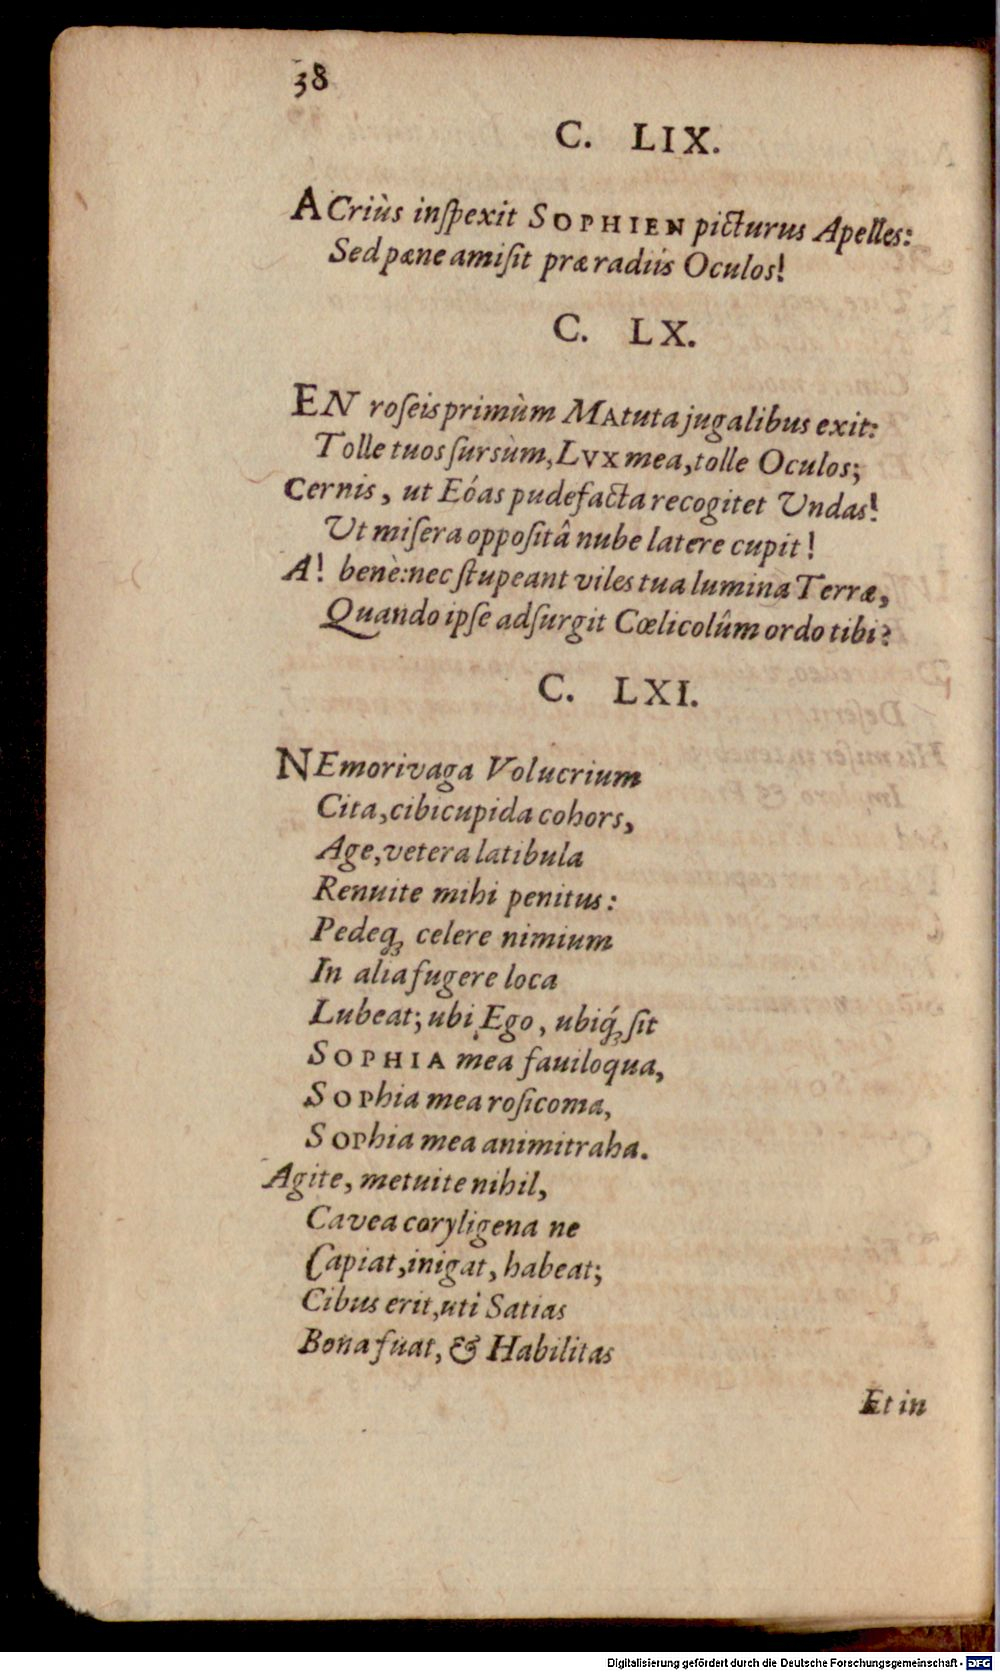 38
C. LIX.
ACriùs inſpexit SOPHIEN picturus Apelles:
Sed pæne amiſit præ radiis Oculos!
C. LX.
EN roſeis primùm MAtuta jugalibus exit:
Tolle tuos ſursùm, LVX mea, tolle Oculos;
Cernis, ut Eóas pudefacta recogitet Undas!
Ut miſera oppoſitâ nube latere cupit!
A! benè: nec ſtupeant viles tua lumina Terræ,
Quando ipſe adſurgit Cœlicolûm ordo tibi?
C. LXI.
NEmorivaga Volucrium
Cita, cibicupida cohors,
Age, vetera latibula
Renuite mihi penitus:
Pedeq; celere nimium
In alia fugere loca
Lubeat; ubi Ego, ubiq́; ſit
SOPHIA mea faviloqua,
SOPhia mea roſicoma,
SOPhia mea animitraha.
Agite, metuite nihil,
Cavea coryligena ne
Capiat, inigat, habeat;
Cibus erit, uti Satias
Bona fuat, & Habilitas
Et in
Digitalisierung gefördert durch die Deutsche Forschungsgemeinschaft - DFG